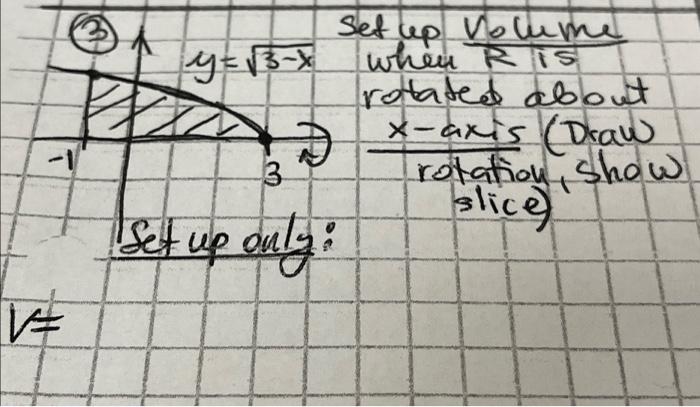 ③
y=√3-x
Set up Volume
when R is
rotated about
x-axis (Draw
rotation, show
slice)
-1
3
Set up only:
V=